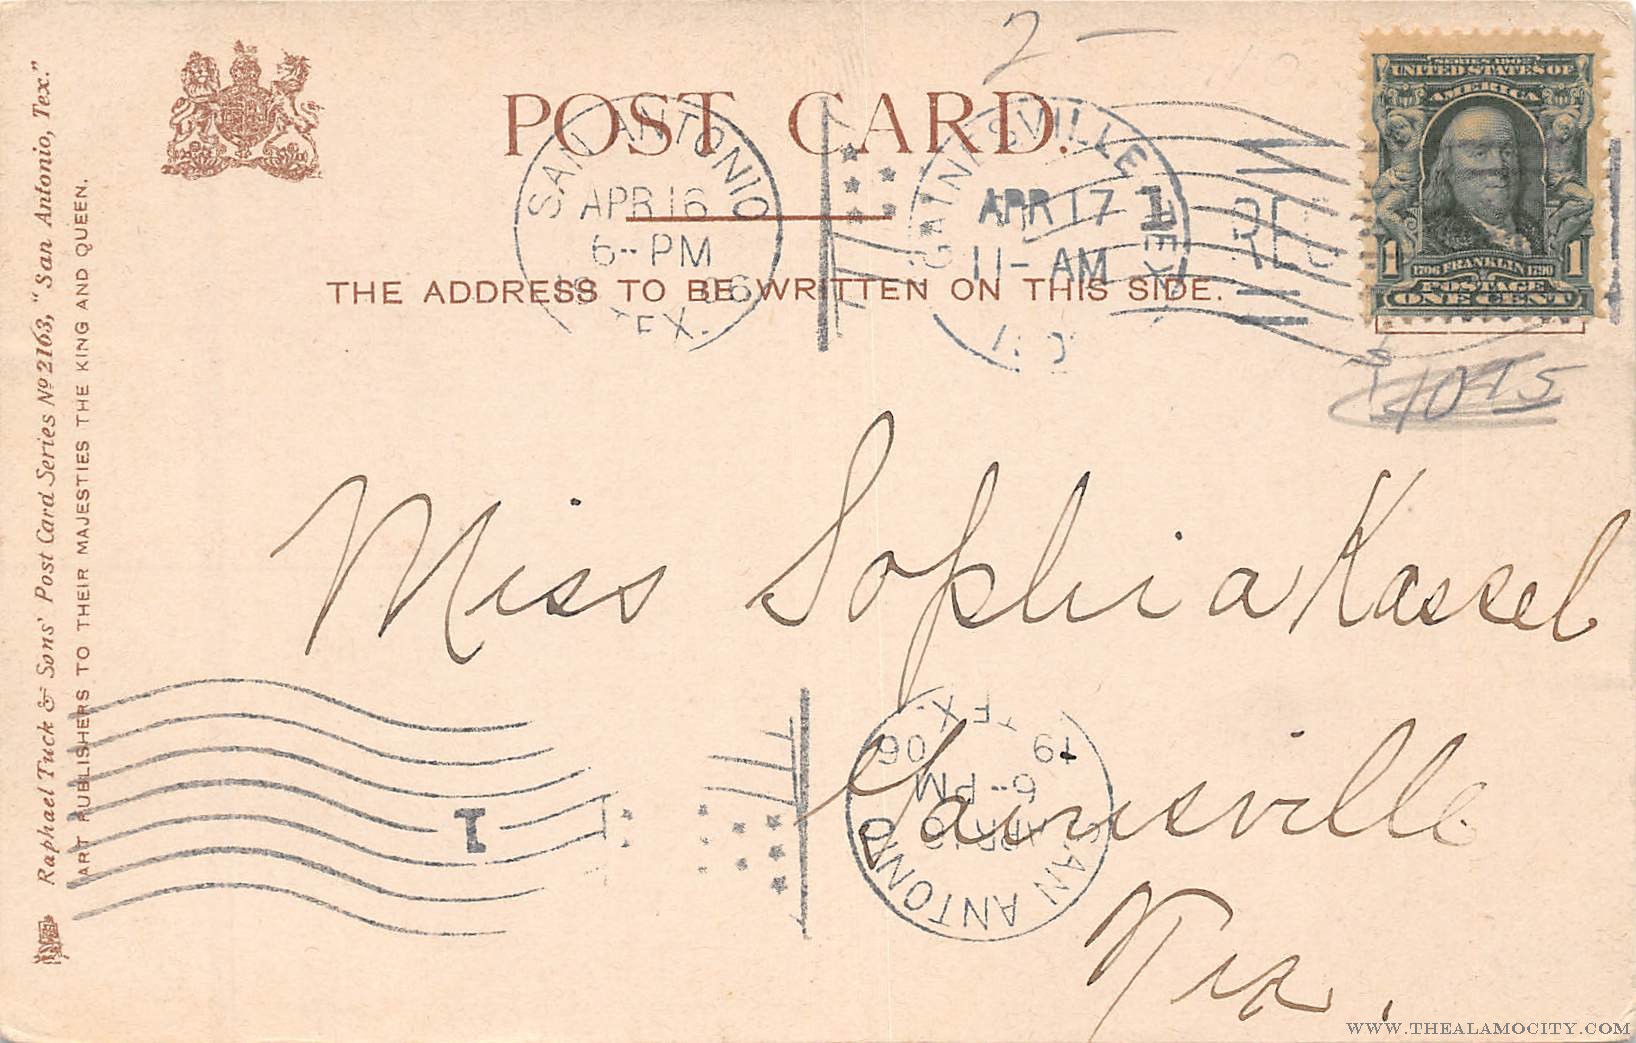 2 —
POST CARD.
THE ADDRESS TO BE WRITTEN ON THIS SIDE.
SERIES 1902
UNITED STATES OF
AMERICA
1 1
1706 FRANKLIN 1790
POSTAGE
ONE CENT
SAN ANTONIO
APR 16
6-PM
19 06
TEX.
GAINESVILLE
APR 17
11-AM
TEX.
1
REC'D
Miss Sophia Kassel
Gainsville
Tex.
SAN ANTONIO
APR 16
6-PM
19 06
TEX.
1
Raphael Tuck & Sons' Post Card Series No 2163, "San Antonio, Tex."
ART PUBLISHERS TO THEIR MAJESTIES THE KING AND QUEEN.
WWW.THEALAMOCITY.COM